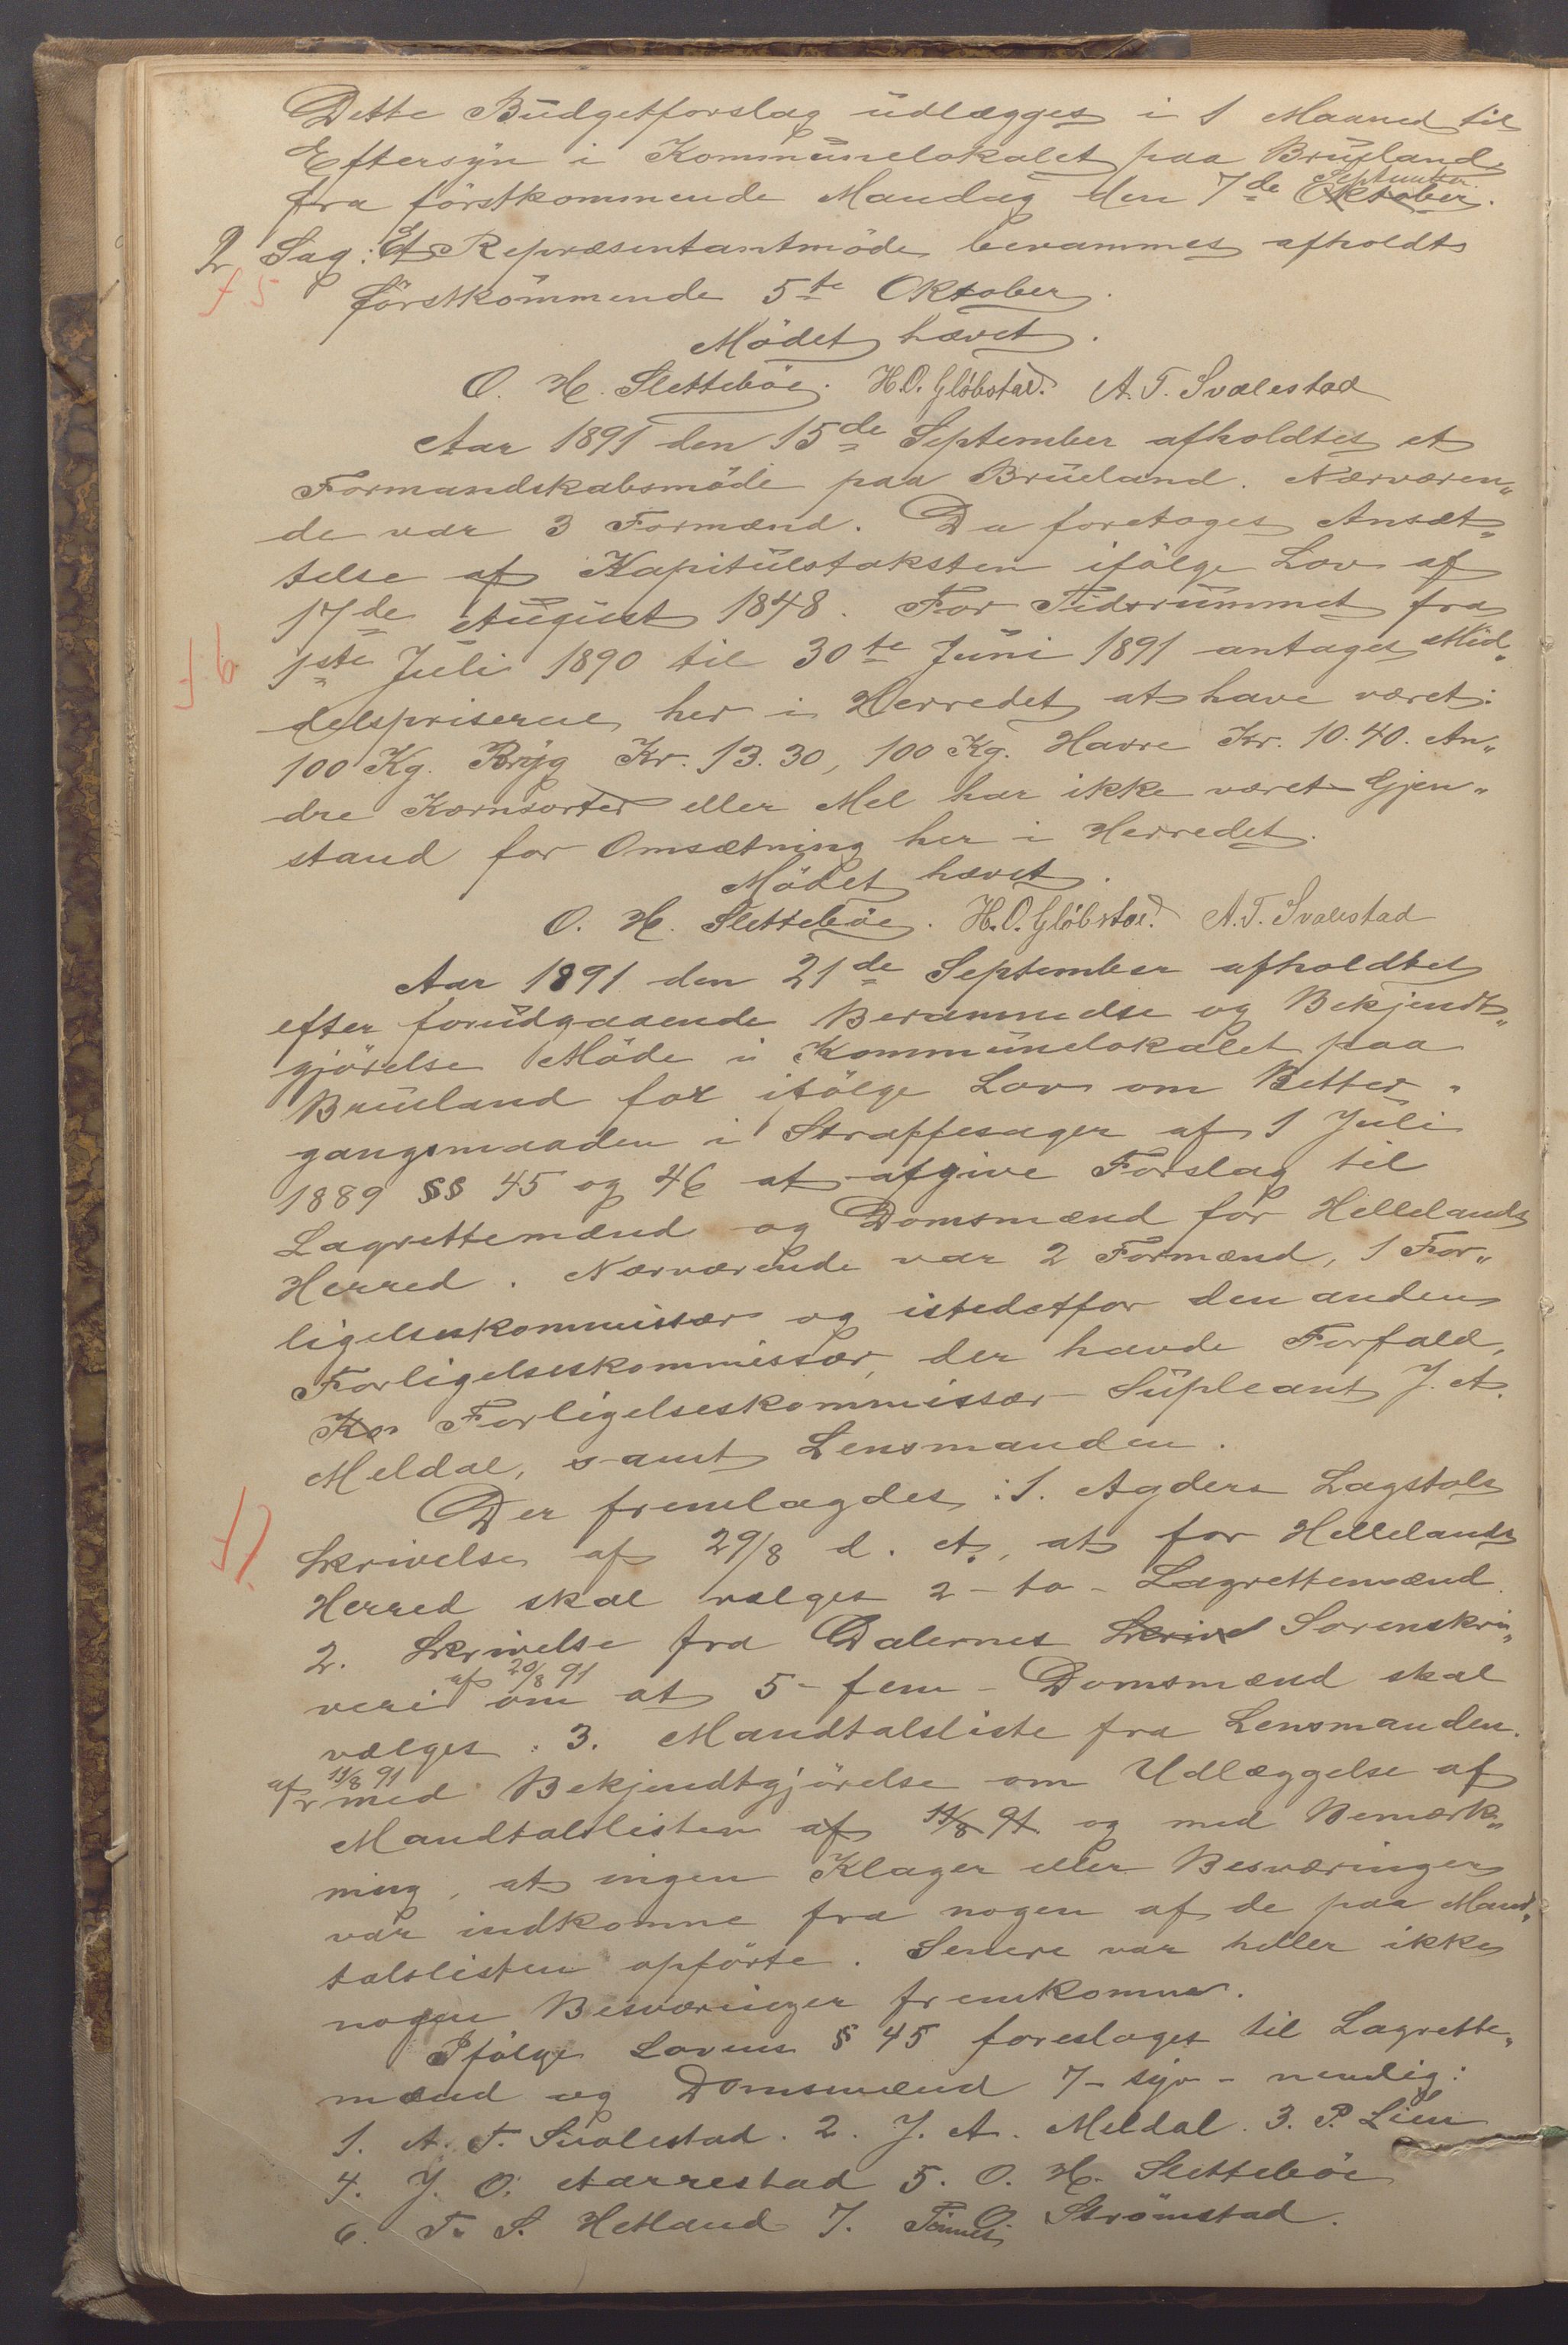 Dette Budgetforslag udlægges i 1 Maaned til
Eftersyn i Kommunelokalet paa Brueland
September
fra förstkommende Mandag den 7de Oktober.
2 Sag: Et Repræsentantmöde berammes afholdt
f 5
förstkommende 5te Oktober.
Mödet hævet.
O. H. Sletteböe. H.O. Glöbstad. A. T. Svalestad
Aar 1891 den 15de September afholdtes et
Formandskabsmöde paa Brueland. Nærværen„
de var 3 Formænd. Da foretoges Ansæt„
telse af Kapitulstaksten ifölge Lov af
17de August 1848. For Tidsrummet fra
f. 6
1ste Juli 1890 til 30te Juni 1891 antages Mid„
delspriserne her i Herredet at have været:
100 Kg. Rüg Kr. 13.30, 100 Kg. Havre Kr. 10.40. An„
dre Kornsorter eller Mel har ikke været Gjen„
stand for Omsætning her i Herredet.
Mödet hævet.
O. H. Sletteböe. H.O. Glöbstad. A.T. Svalestad
Aar 1891 den 21de September afholdtes
efter forudgaaende Berammelse og Bekjendt„
gjörelse Möde i Kommunelokalet paa
Brueland for ifölge Lov om Retter„
gangsmaaden i Straffesager af 1 Juli
1889 §§ 45 og 46 at afgive Forslag til
Lagrettemænd og Domsmænd for Hellelands
Herred. Nærværende var 2 Formænd, 1 For„
ligelseskommissær og istedetfor den anden
Forligelseskommissær, der havde Forfald,
Ko Forligelseskommissær-Supleant J. A.
Meldal, samt Lensmanden.
Der fremlagdes: 1. Agders Lagstols
f 7
Skrivelse af 29/8 d. A., at for Hellelands
Herred skal vælges 2 - to - Lagrettemænd.
2. Skrivelse fra Dalernes Skrive Sorenskri„
af 20/8 91
veri om at 5 - fem - Domsmænd skal
vælges. 3. Mandtalsliste fra Lensmanden
af 11/8 91
med Bekjendtgjörelse om Udlæggelse af
Mandtalslisten af 11/8 91 og med Bemærk„
ning, at ingen Klager eller Besværinger
var indkomne fra nogen af de paa Mand„
talslisten opförte. Senere var heller ikke
nogen Besværinger fremkomne.
Ifölge Lovens § 45 foreslages til Lagrette„
mænd og Domsmænd 7 - syv - nemlig:
1. A. T. Svalestad. 2. J. A. Meldal. 3. P. Lien
4. J. O. Aarrestad 5. O. H. Sletteböe
6. T. S. Hetland 7. Tönnes O. Strömstad.